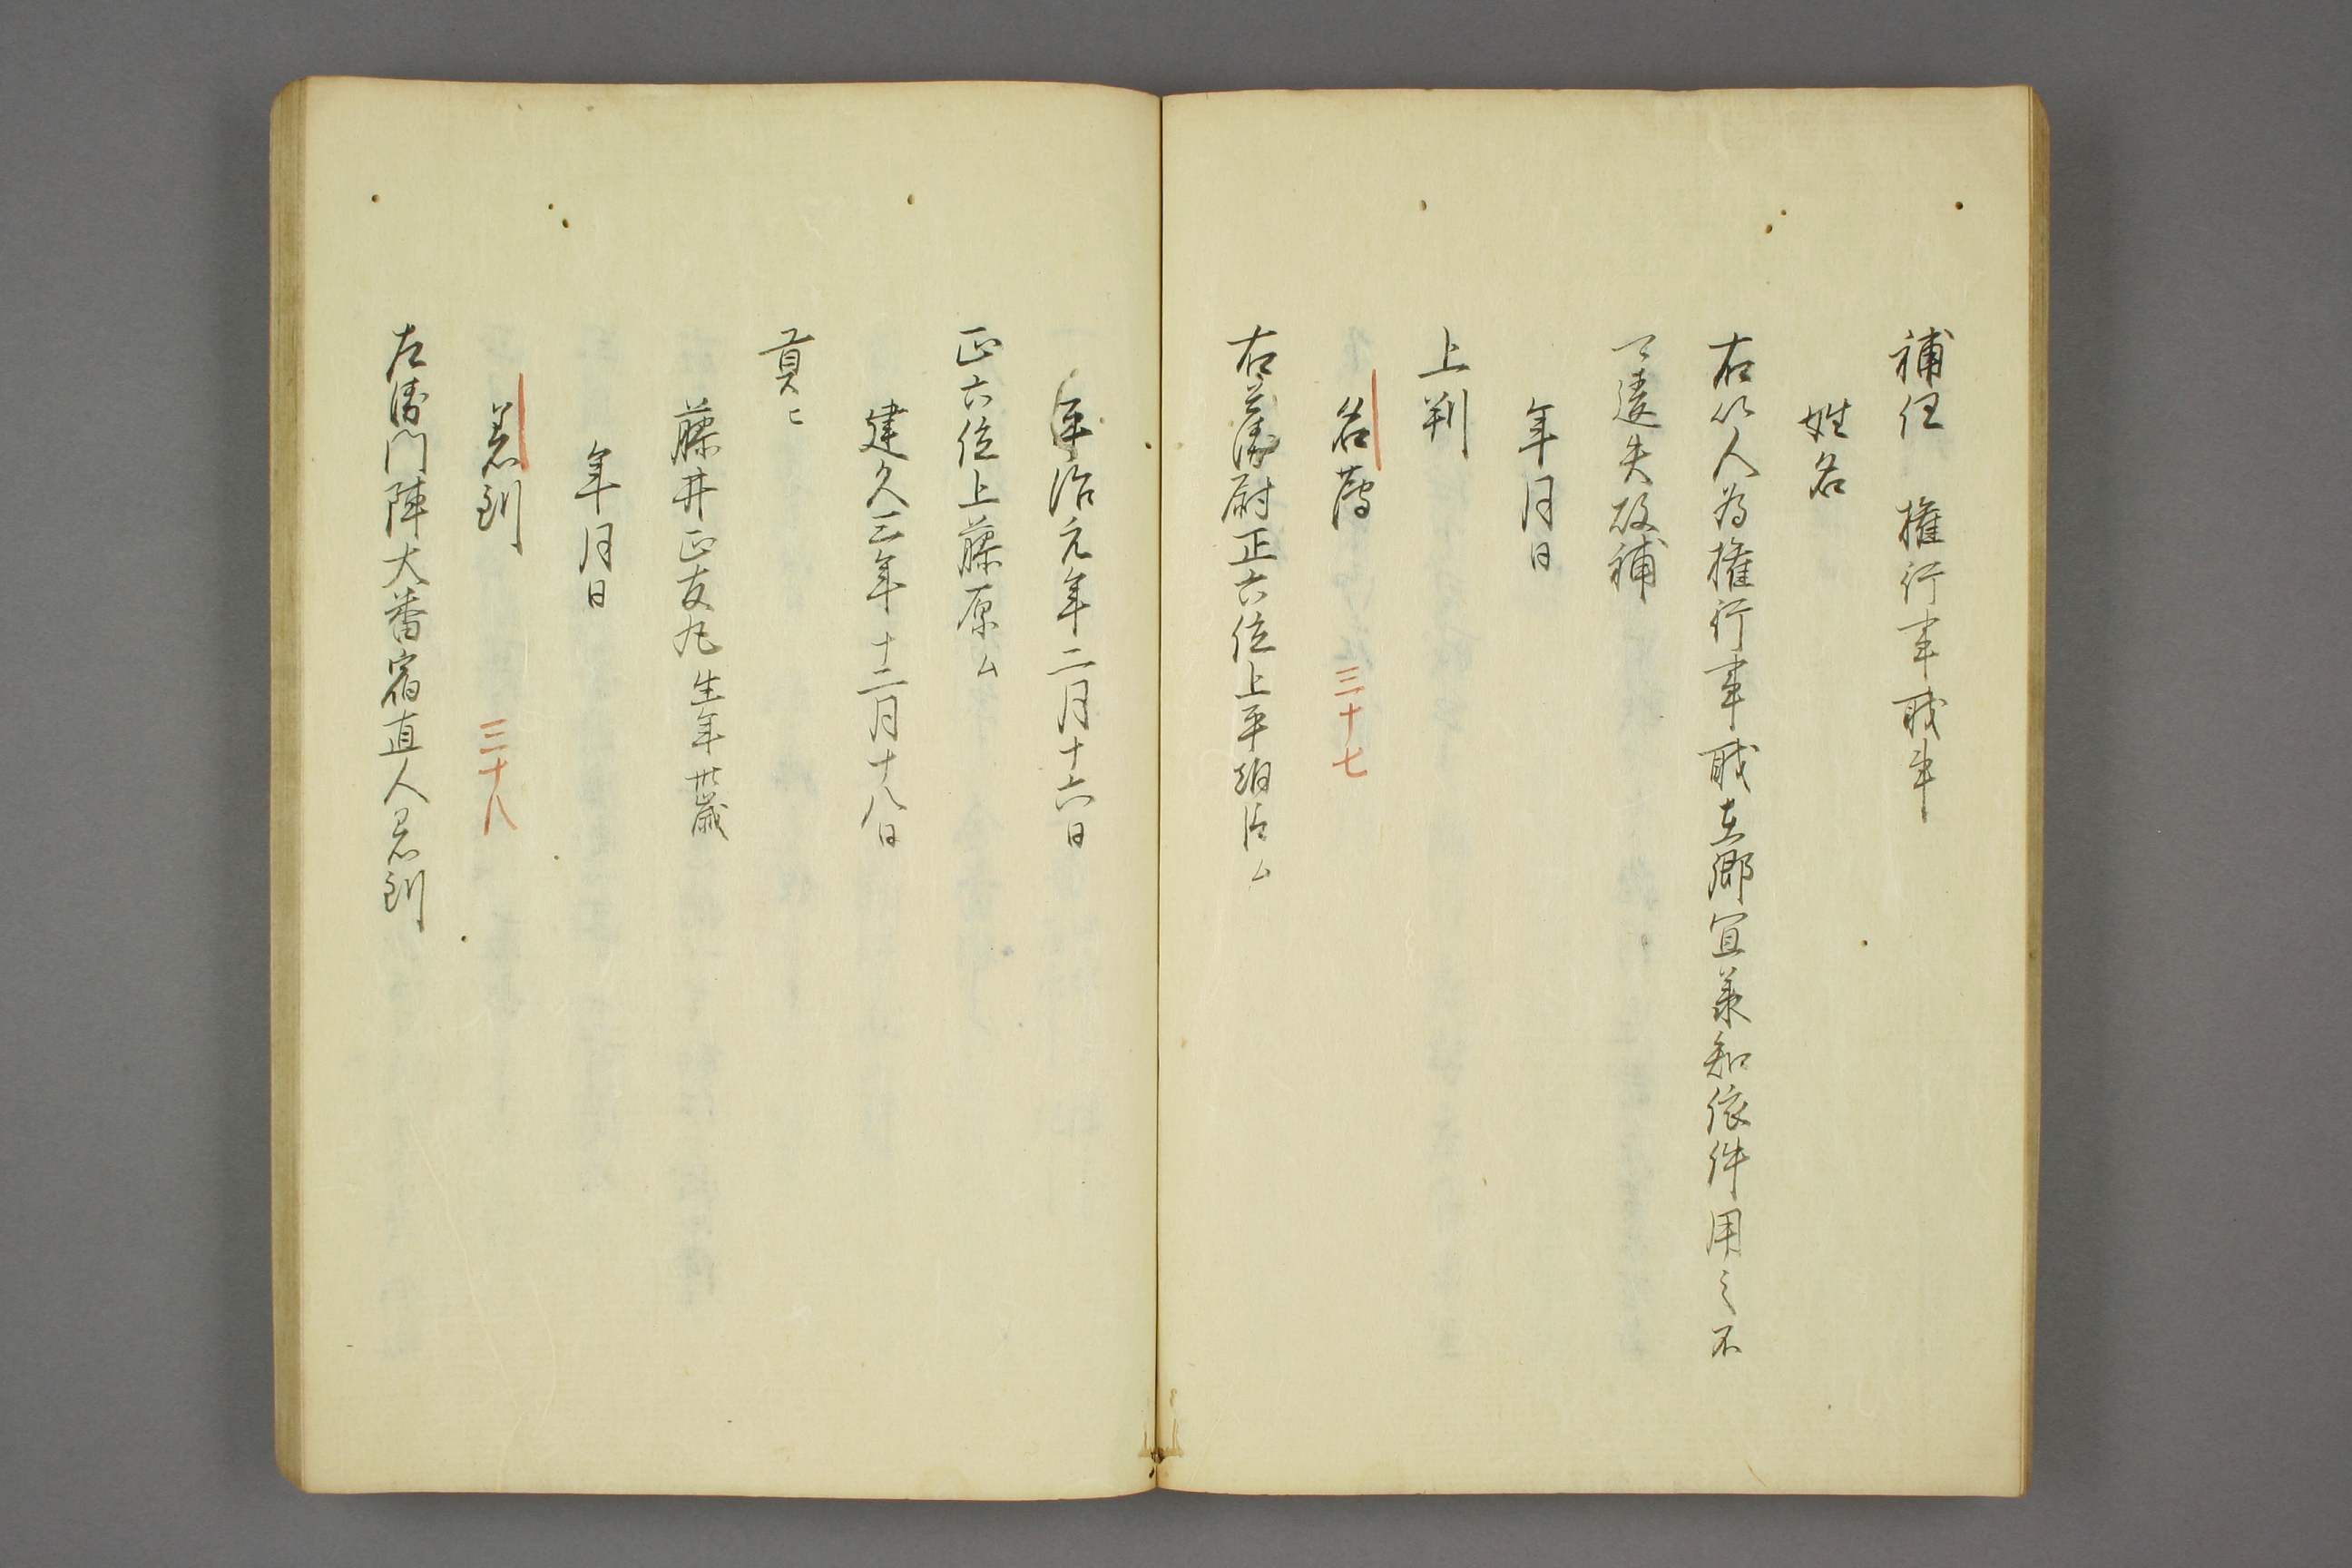 補任 権行事職事
姓名
右以人為権行事職在郷宜承知依件用之不
可違失故補
年月日
上判
名簿 三十七
右兵衛尉正六位上平朝臣ム
平治元年二月十六日
正六位上藤原ム
建久三年十二月十八日
貢上
藤井正友丸生年廿歳
年月日
着到 三十八
左衛門陣大番宿直人着到